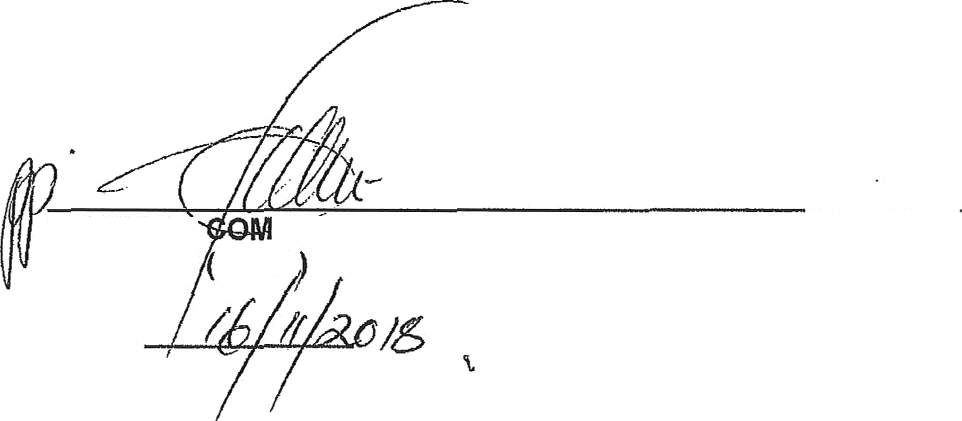 pp
COM
( )
16/11/2018